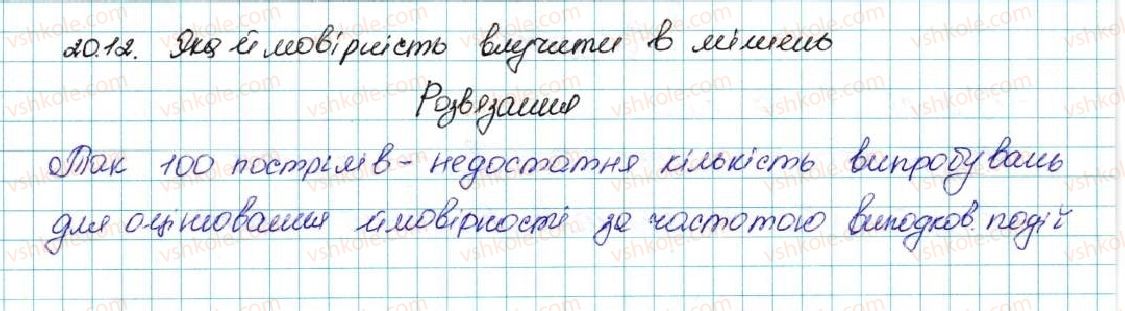 20.12. Яка ймовірність влучити в мішень
Розвязання
Так 100 пострілів - недостатня кількість випробувань
для оцінювання ймовірності за частотою випадков. подій